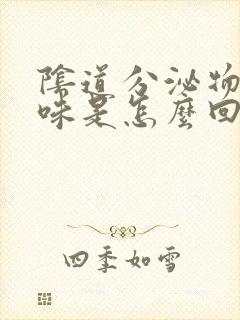 陰道分泌物
味是怎麼回
四季如雪